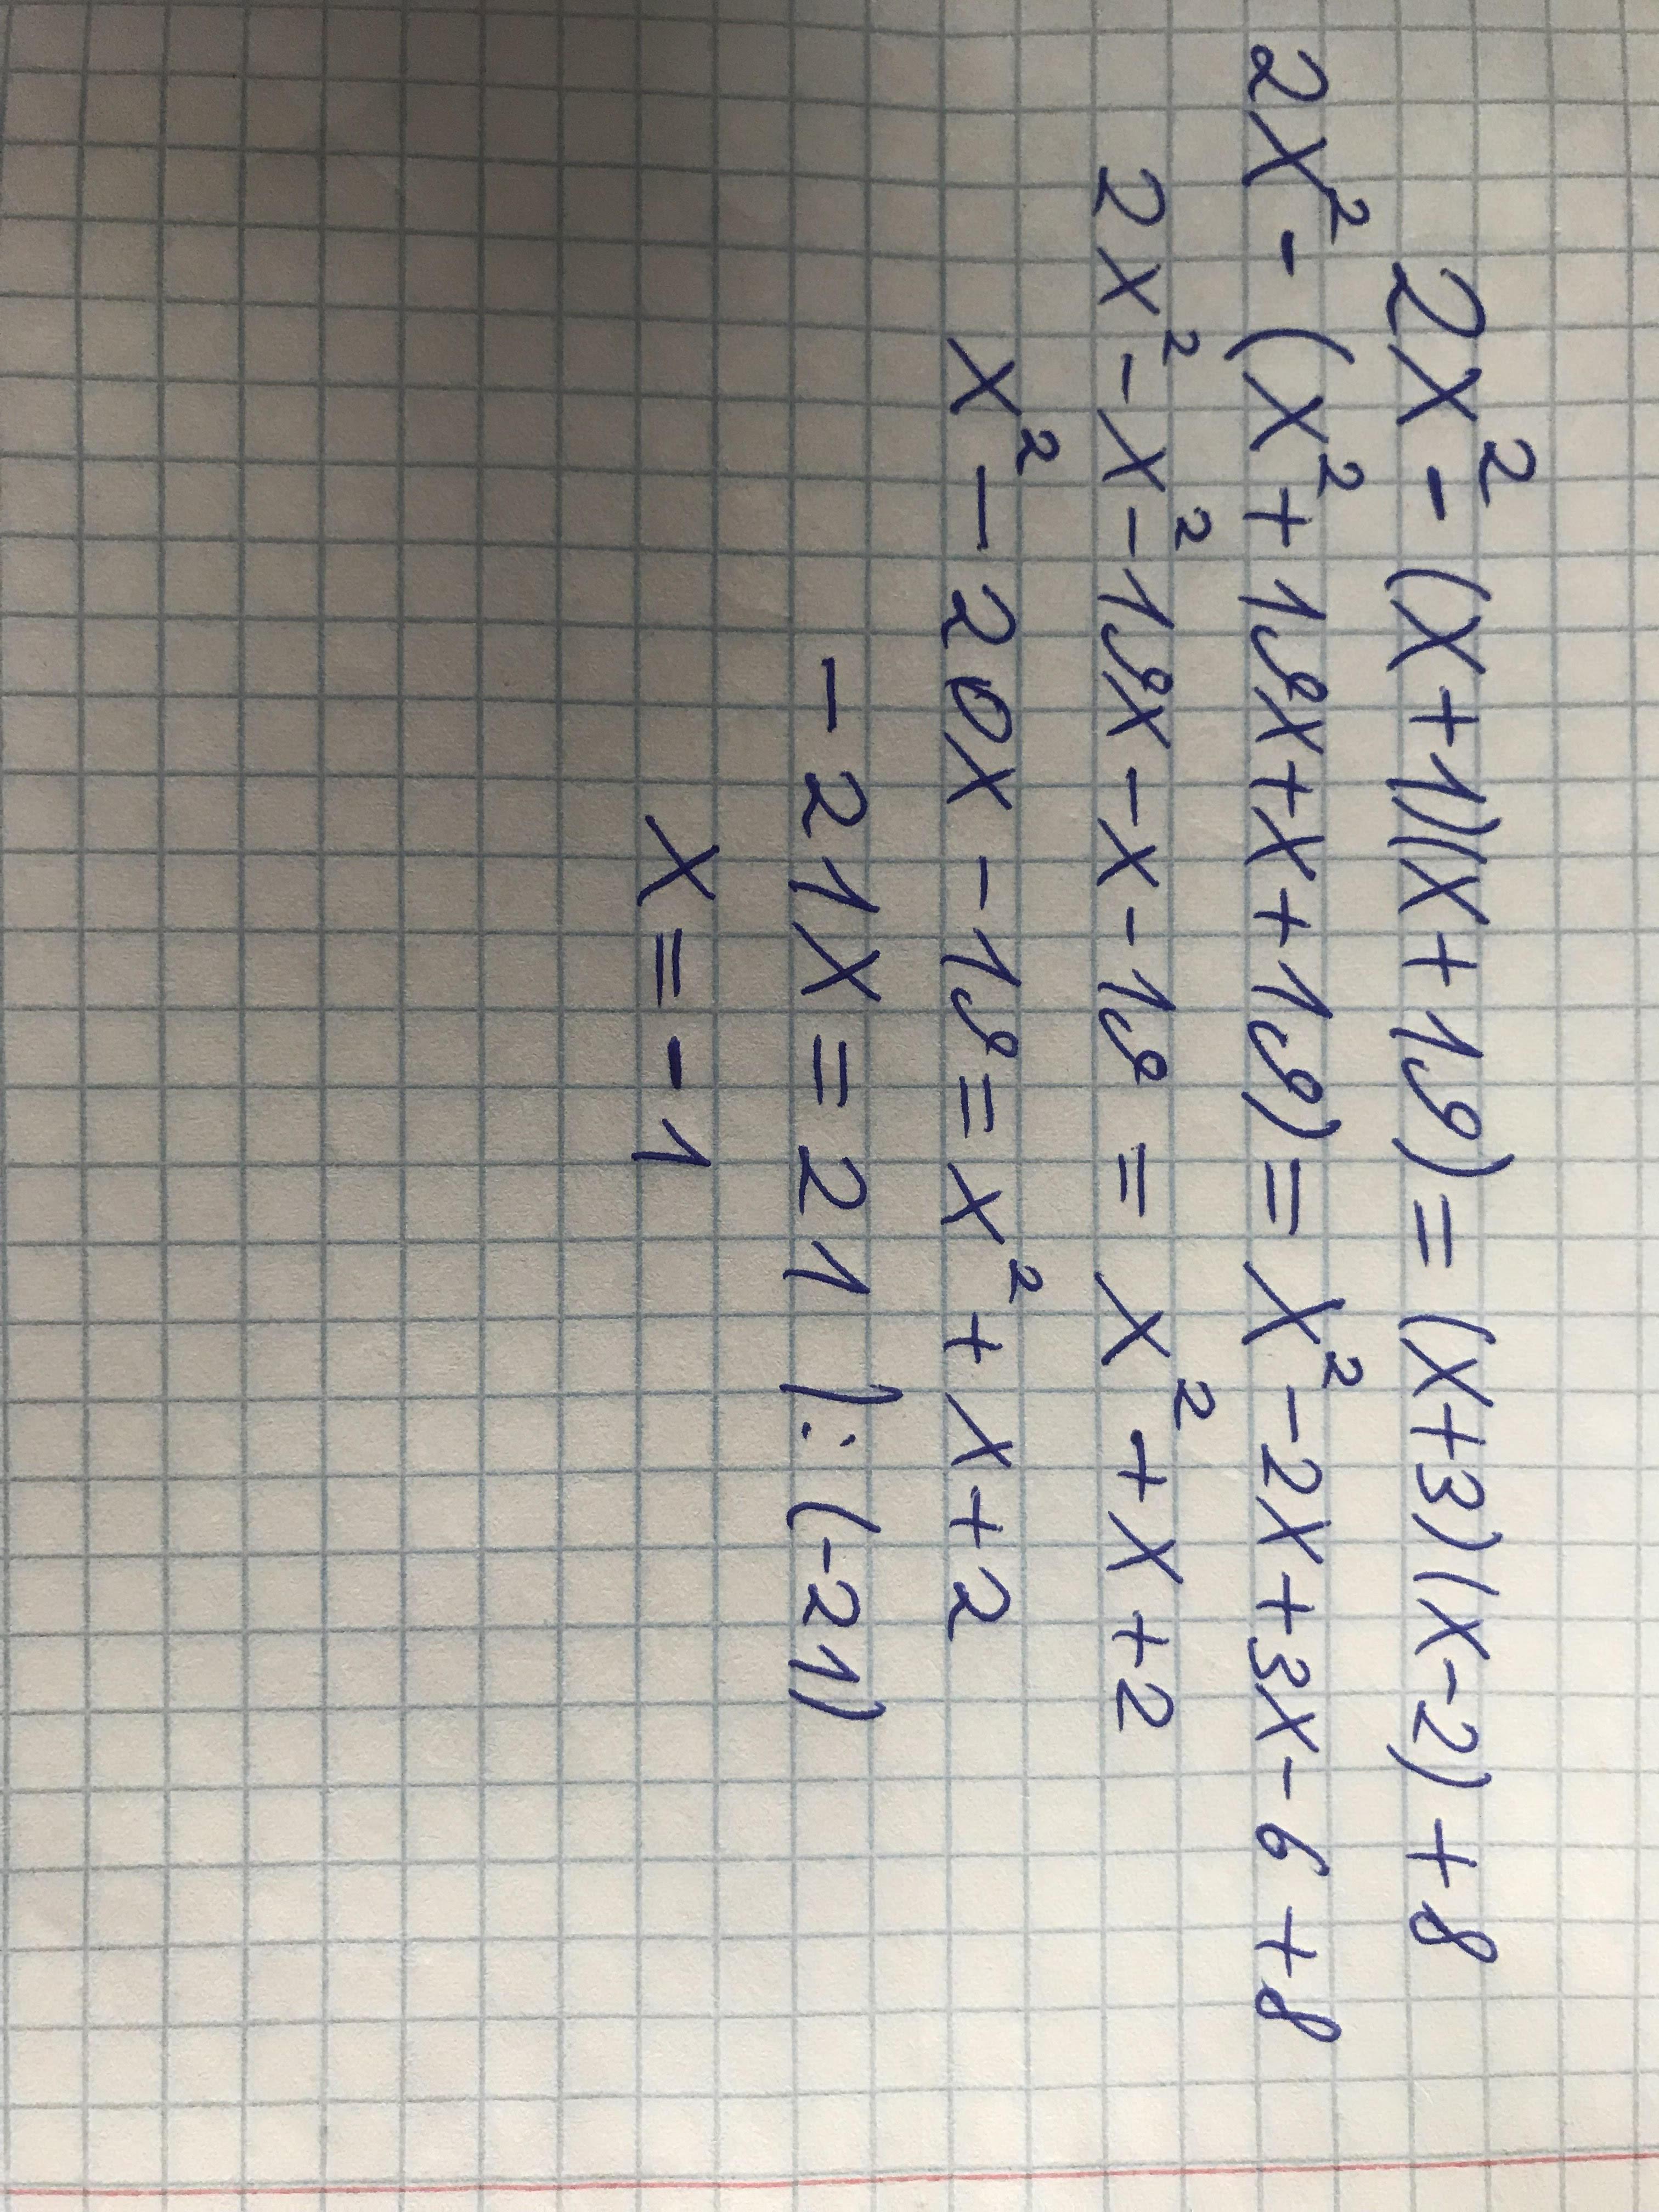 2x² - (x+1)(x+19) = (x+3)(x-2)+8
2x² - (x²+19x+x+19) = x²-2x+3x-6+8
2x²-x²-19x-x-19 = x²+x+2
x²-20x-19 = x²+x+2
-21x = 21 |:(-21)
x = -1